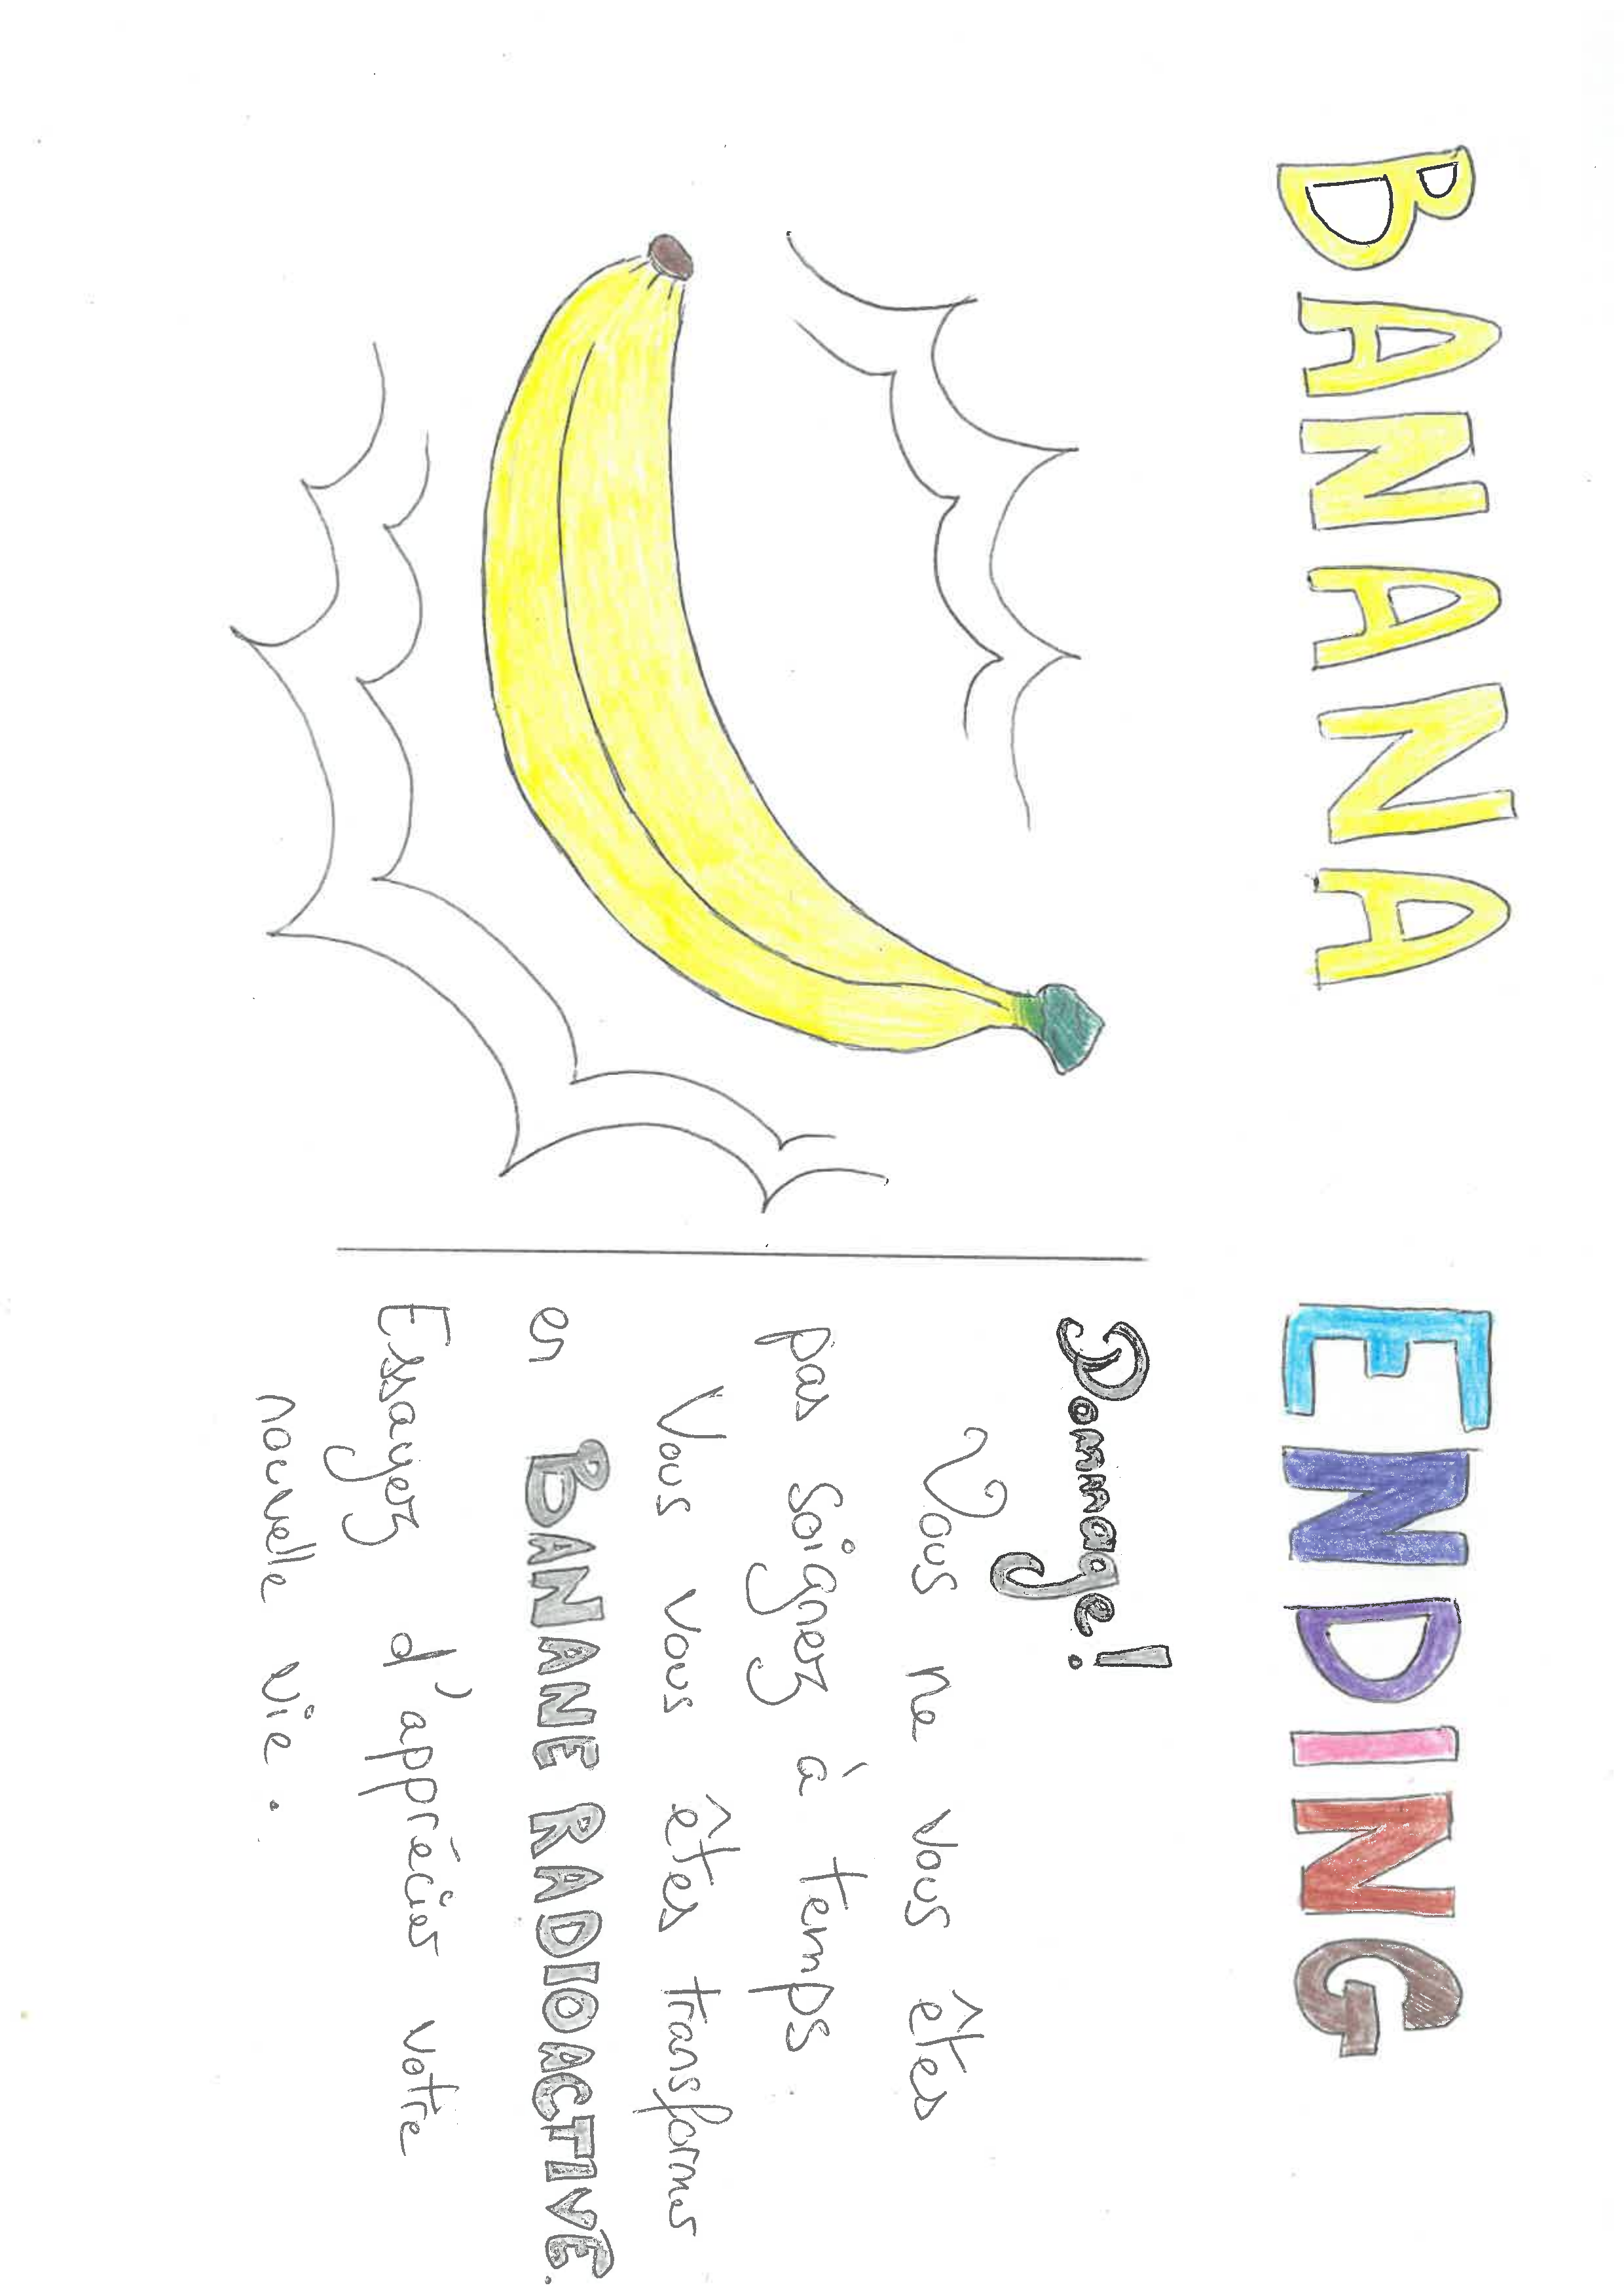 BANANA ENDING
Dommage!
Vous ne vous êtes
pas soignez à temps.
Vous vous êtes transformés
en BANANE RADIOACTIVE.
Essayez d'apprécier votre
nouvelle vie.